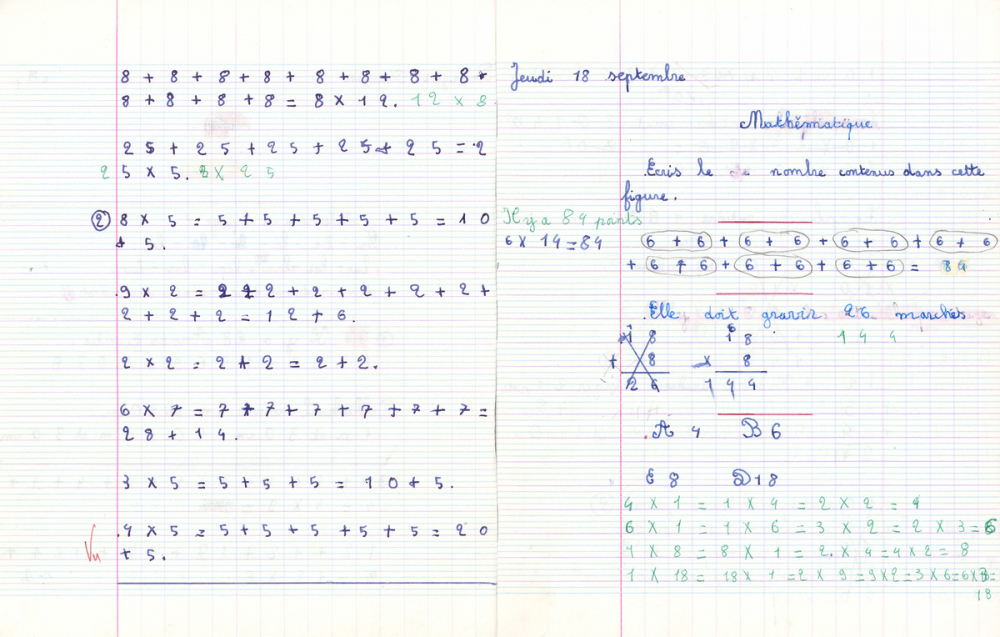 8 + 8 + 8 + 8 + 8 + 8 + 8 + 8 +
8 + 8 + 8 + 8 = 8 × 12. 12 × 8
25 + 25 + 25 + 25 + 25 = 2
25 × 5. × 25
② 8 × 5 = 5 + 5 + 5 + 5 + 5 = 10
+ 5.
9 × 2 = 2 + 2 + 2 + 2 + 2 + 2 +
2 + 2 + 2 = 12 + 6.
2 × 2 = 2 + 2 = 2 + 2.
6 × 7 = 7 + 7 + 7 + 7 + 7 + 7 =
28 + 14.
3 × 5 = 5 + 5 + 5 = 10 + 5.
4 × 5 = 5 + 5 + 5 + 5 + 5 = 20
Vu + 5.
Jeudi 18 septembre
Mathématique
Ecris le nombre contenus dans cette
figure.
Il y a 84 points
6 × 14 = 84
6 + 6 + 6 + 6 + 6 + 6 + 6 + 6
+ 6 + 6 + 6 + 6 + 6 + 6 = 84
Elle doit gravir 26 marches
18 18 144
+ 8 × 8
26 144
A 4 B 6
E 8 D 18
4 × 1 = 1 × 4 = 2 × 2 = 4
6 × 1 = 1 × 6 = 3 × 2 = 2 × 3 = 6
1 × 8 = 8 × 1 = 2 × 4 = 4 × 2 = 8
1 × 18 = 18 × 1 = 2 × 9 = 9 × 2 = 3 × 6 = 6 × 3 =
18